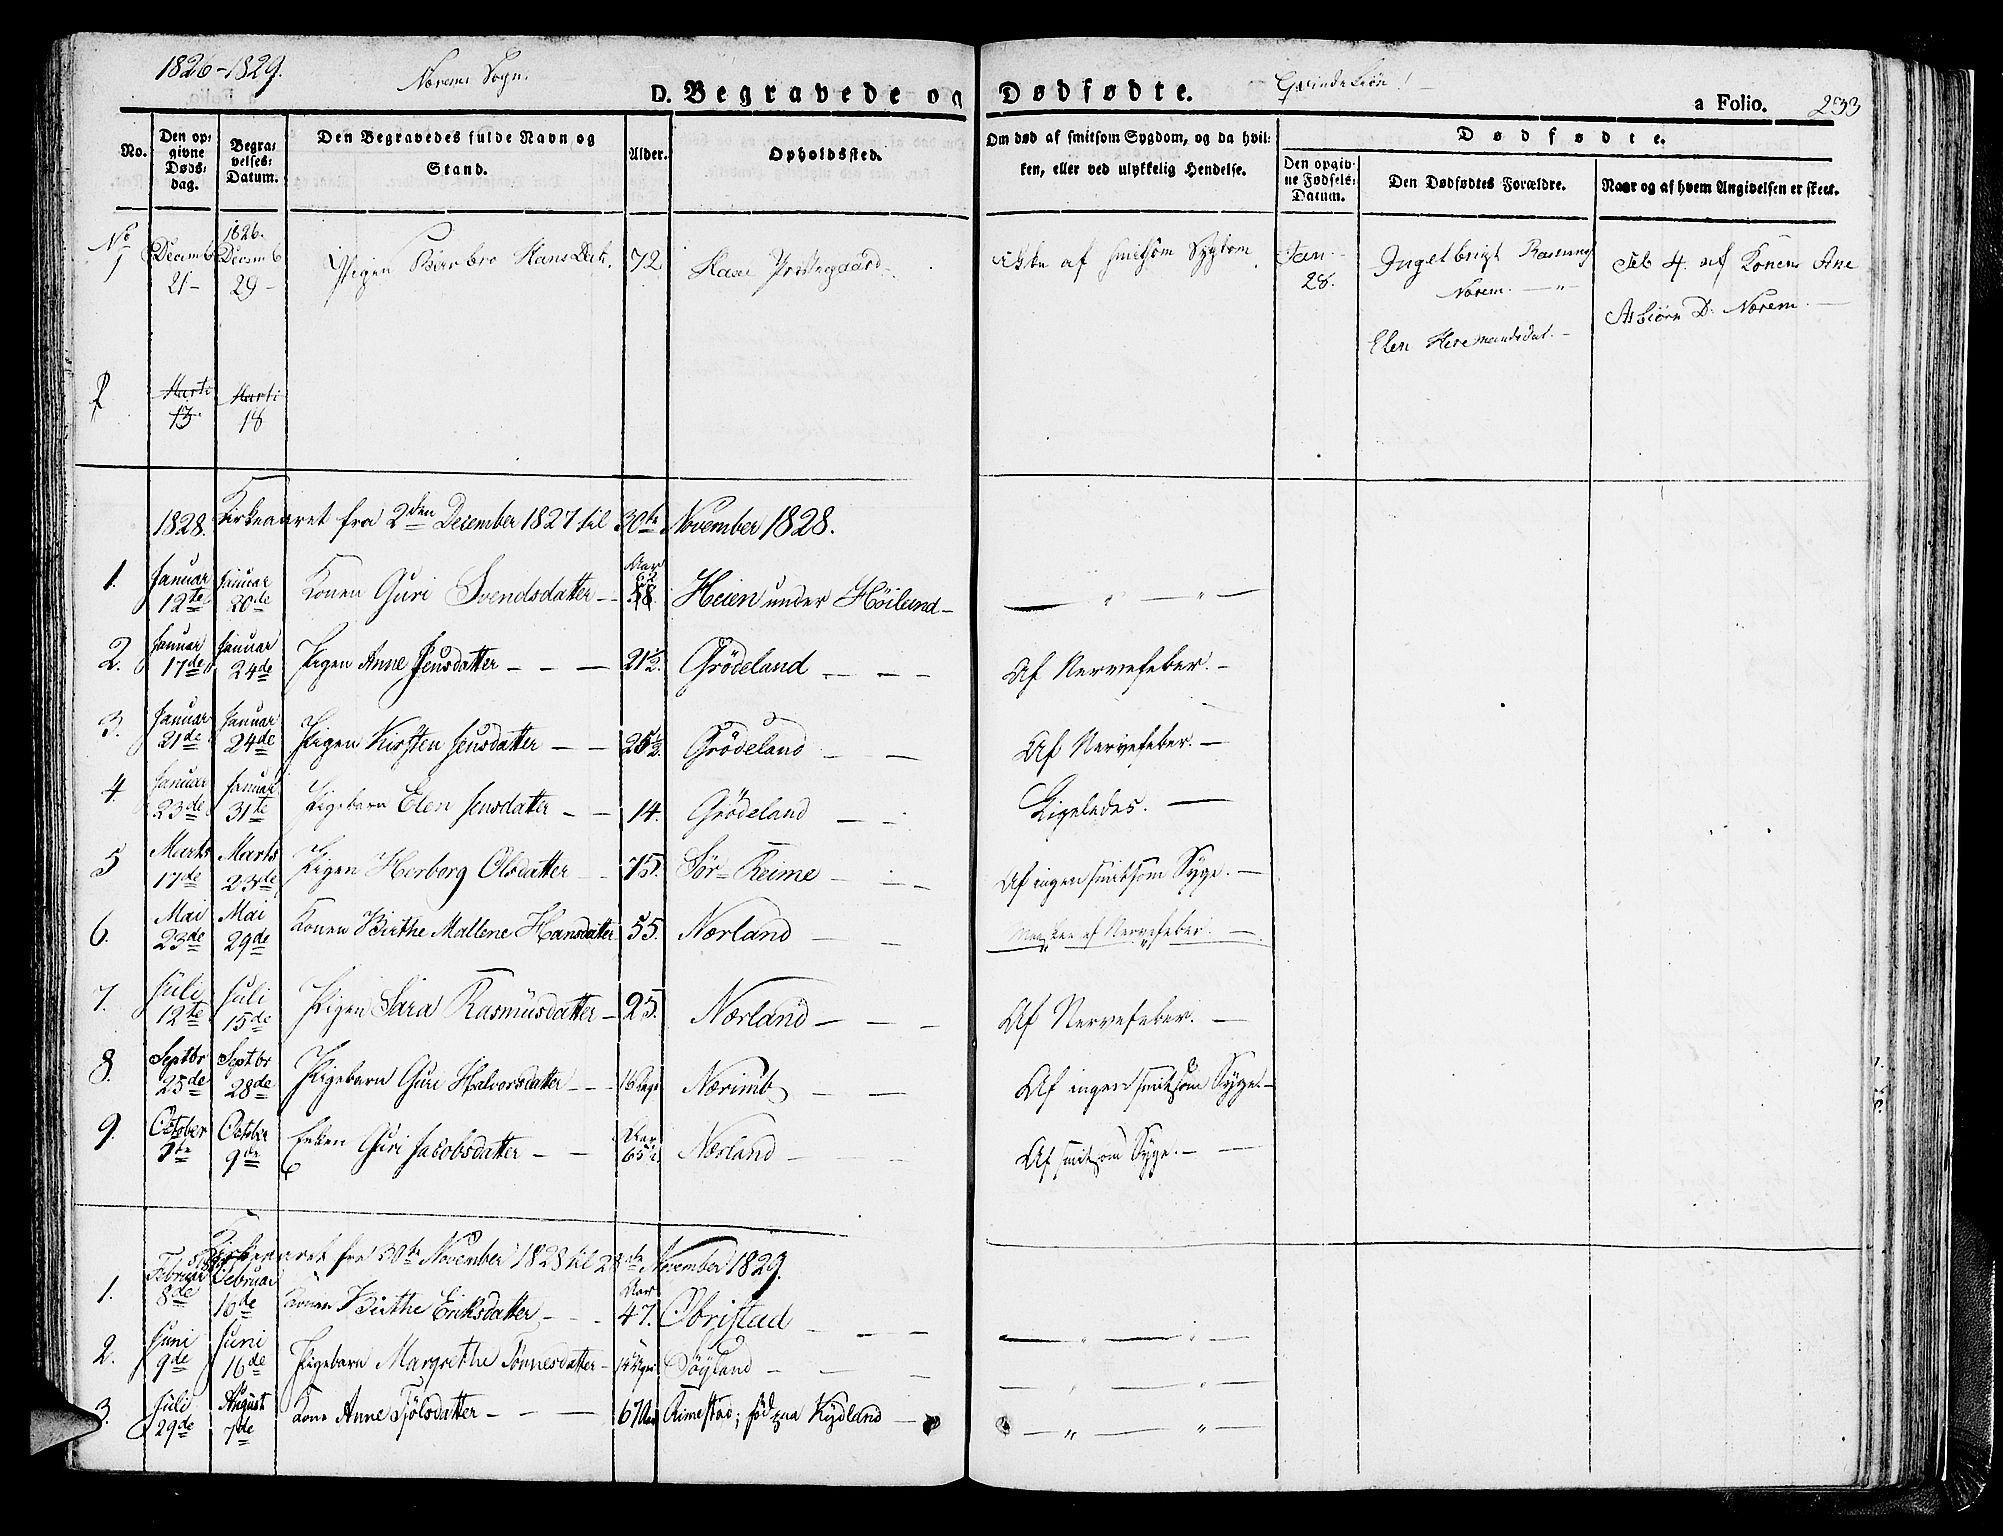 1826-1829. Nærems Sogn. D. Begravede og Dødfødte. Qvindekiön! a Folio. 233
No. | Den opgivne Døds-dag. | Begravelses-Datum. | Den Begravedes fulde Navn og Stand. | Alder. | Opholdssted. | Om død af smitsom Sygdom, og da hvilken, eller ved ulykkelig Hendelse. | Dødfødte.
Den opgivne Fødsels-Datum. | Den Dødfødtes Forældre. | Naar og af hvem Angivelsen er skeet.
No 1 | Decemb 21 | 1826. Decemb 29 | Pigen Berbro Hans Dat. | 72 | Præstegaard | ikke af smitsom Sygdom | Jan. 28. | Ingelbrigt Rasmus Nærem. | Feb 4. af Konen Ane
Elen | Asbiörn D. Nærem.
2 | Marti 13. | Marti 18
1828. Kirkeaaret fra 2den December 1827 til 30te November 1828.
1. | Januar 12te | Januar 20de | Konen Guri Svendsdatter | Aar 62 58. | Heien under Höiland | — " — " —
2. | Januar 17de | Januar 24de | Pigen Anne Jensdatter | 21½. | Grödeland | Af Nervefeber.
3. | Januar 21de | Januar 24de | Pigen Kirsten Jensdatter | 26½. | Grödeland | Af Nervefeber.
4. | Januar 23de | Januar 31te | Pigebarn Elen Jensdatter | 14. | Grödeland | Ligeledes.
5 | Marts 17de | Marts 23de | Pigen Herborg Olsdatter | 75. | Sör-Reime | Af ingen smitsom Syge.
6. | Mai 23de | Mai 29de | Konen Birthe Mallene Hansdatter | 55. | Nærland | af Nervefeber.
7. | Juli 12te | Juli 15de | Pigen Sara Rasmusdatter | 25. | Nærland | Af Nervefeber.
8. | Septbr 25de | Septbr 28de | Pigebarn Guri Halvorsdatter | 16 Dage | Nærimb | Af ingen smitsom Syge.
9. | October 1te | October 9de | Enken Guri Jacobsdatter | Aar 65½ | Nærland | Af smitsom Syge.
Kirkeaaret fra 30te November 1828 til 28de November 1829.
1. | Februar 8de | Februar 16de | Konen Birthe Eriksdatter | Aar 47. | Obristad | — " — " —
2. | Juni 9de | Juni 16de | Pigebarn Margrethe Tönnesdatter | Söyland | — " — " —
3. | Juli 29de | August 7de | Kone Anne Tjölsdatter | 67 Aar | Rimestad; född paa Kydland | — " — " —